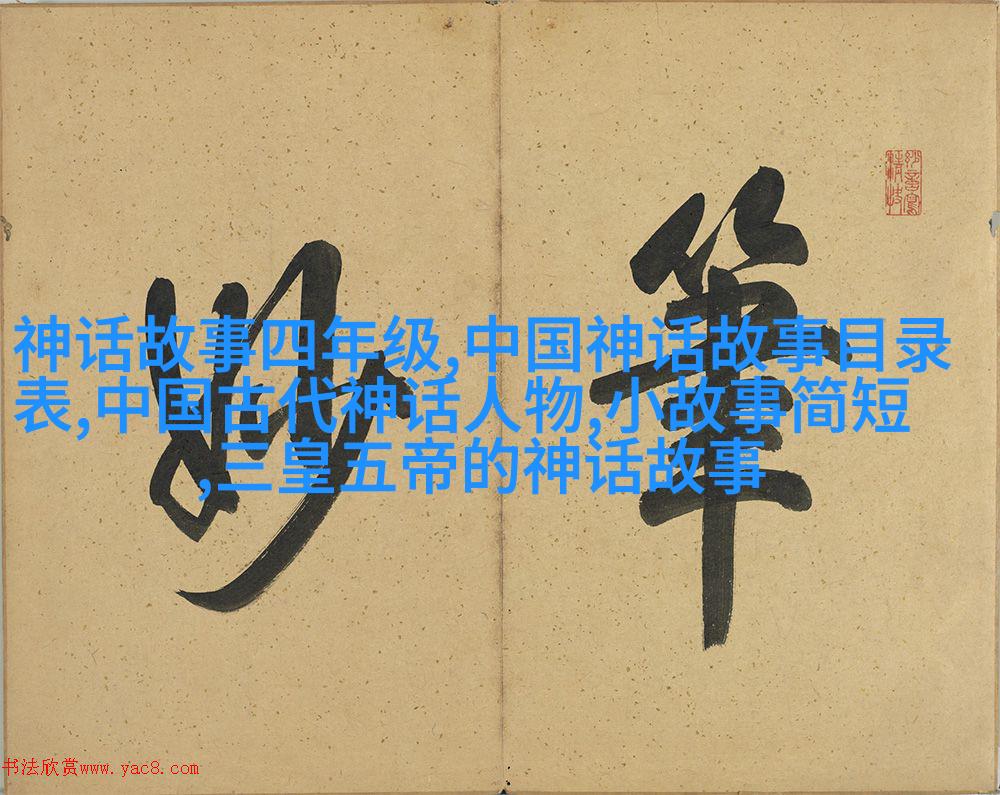 神话故事四年级,中国神话故事目录
表,中国古代神话人物,小故事简短
,三皇五帝的神话故事
筆
妙
书法欣赏www.yac8.com